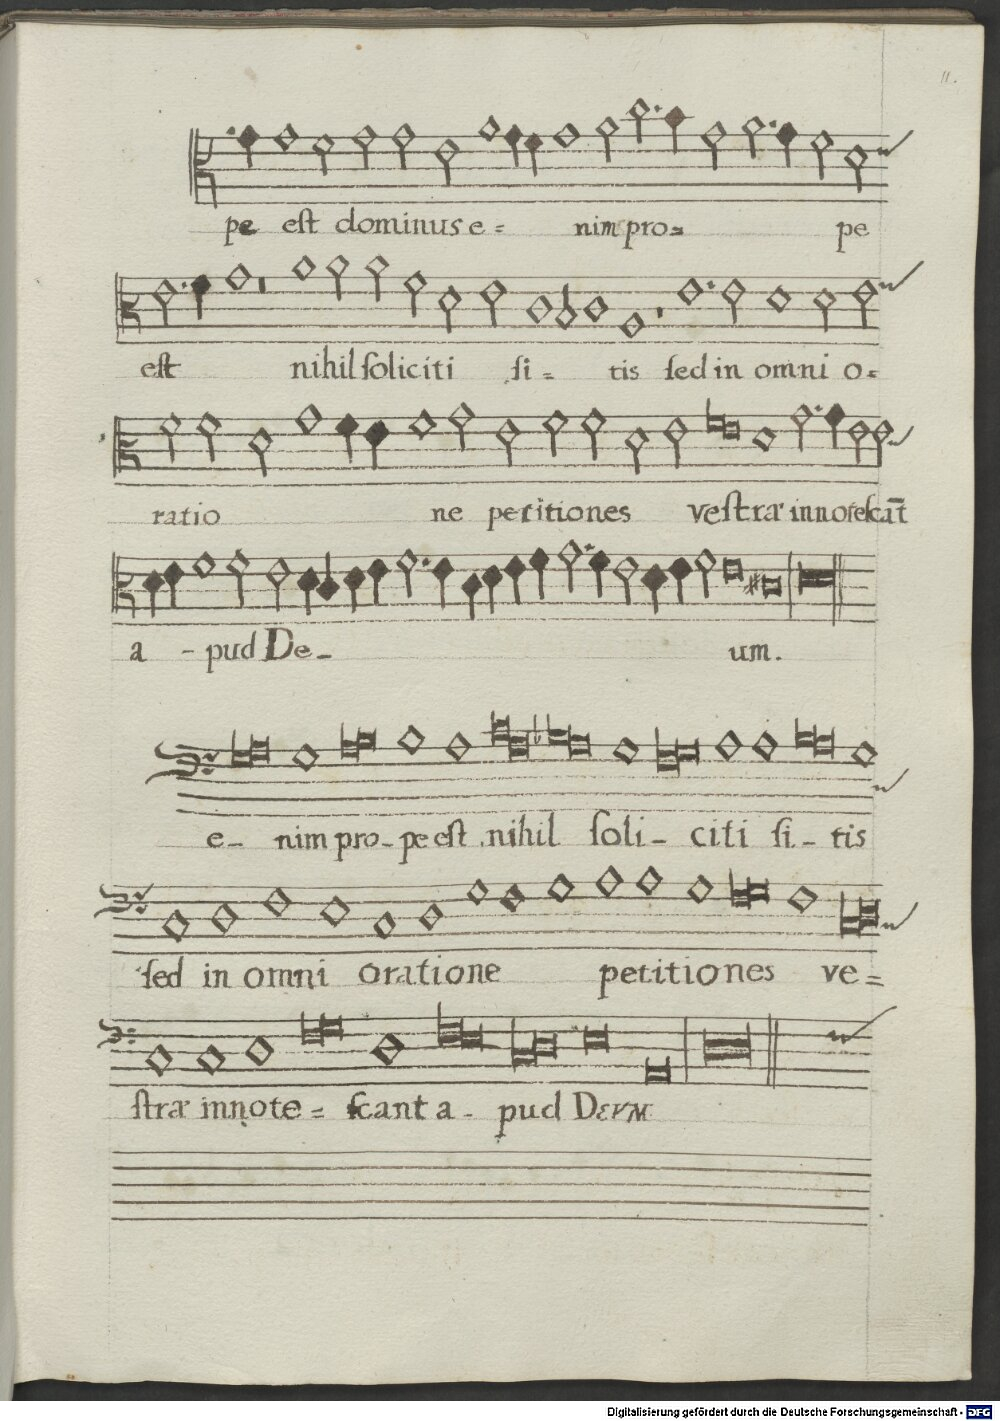 11.
pe est dominus e= nim pro= pe
est nihil soliciti si= tis sed in omni o=
ratio ne petitiones vestræ innotescāt
a - pud De- um.
e- nim pro- pe est nihil soli- citi si- tis
sed in omni oratione petitiones ve=
stræ innote= scant a- pud DEVM
Digitalisierung gefördert durch die Deutsche Forschungsgemeinschaft - DFG